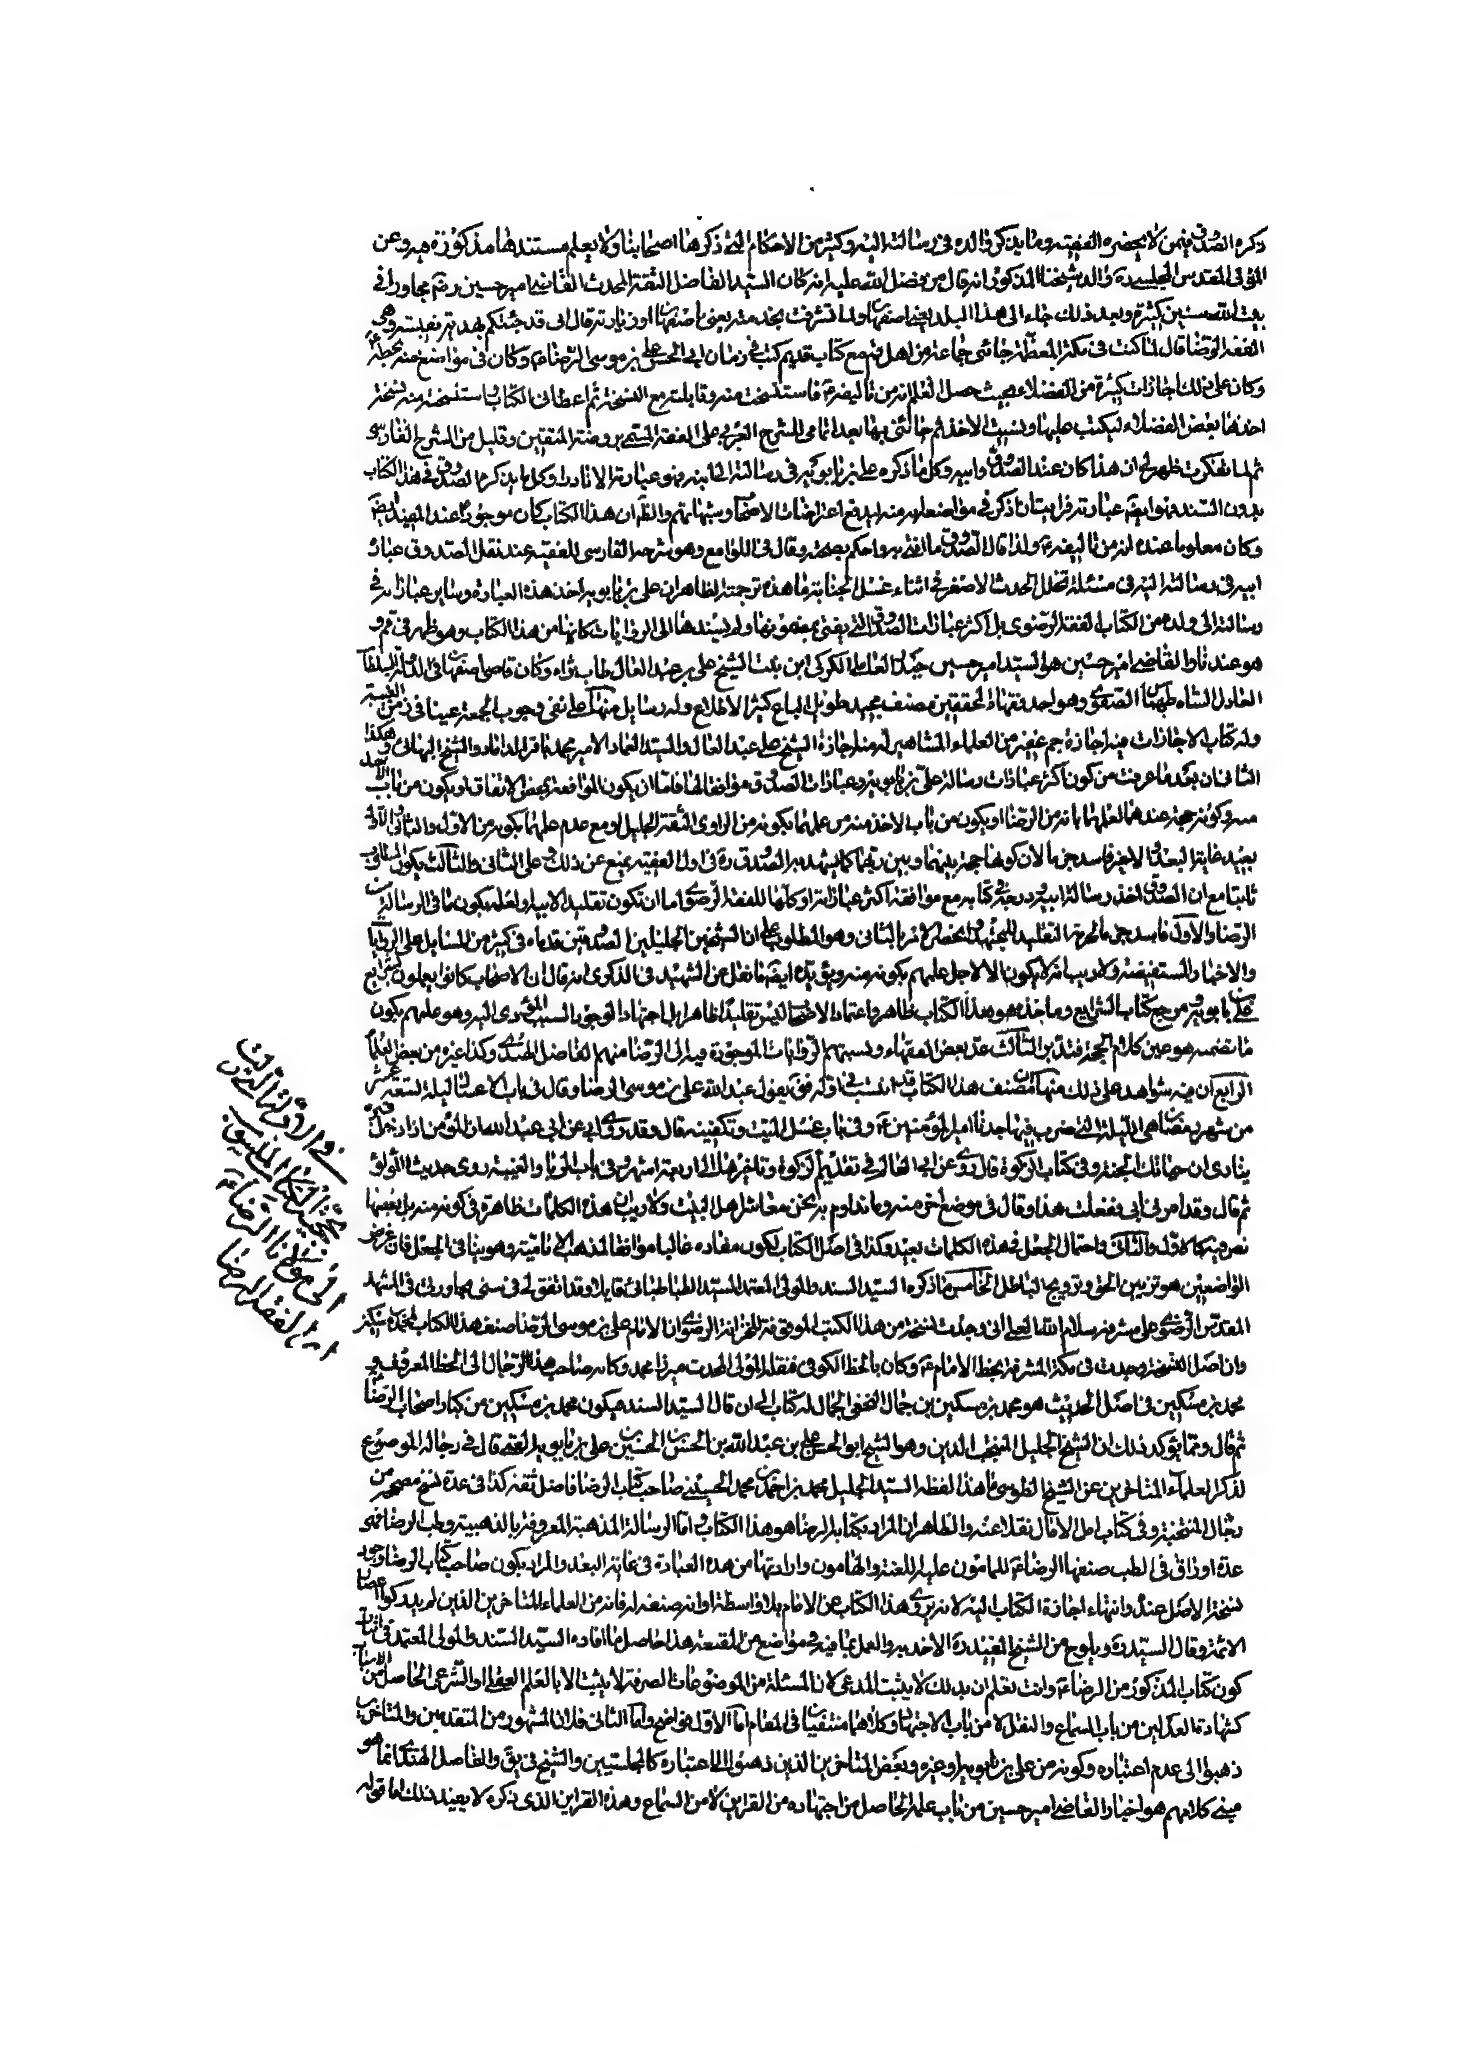 ذكره الصدوق فيمن لا يحضره الفقيه وما يذكر والده في رسالته اليه وكثير من الاحكام التي ذكرها اصحابنا ولا يعلم مستندها مذكورة فيه وعن
المولى المقدس المجلسي ره والد شيخنا المذكور انه قال من فضل الله عليه انه كان السيد الفاضل الثقة المحدث القاضي امير حسين ره مجاورا في
بيت الله سنين كثيرة وبعد ذلك جاء الى هذا البلد يعني اصفهان ولما تشرفت بخدمته يعني باصفهان اول زيارته قال اني قد جئتكم بهدية نفيسة وهي
الفقه الرضا قال لما كنت في مكة المعظمة جائني جماعة من اهل قم مع كتاب قديم كتب في زمان ابي الحسن علي بن موسى الرضا ع وكان في مواضع منه بخطه ع
وكان على ذلك اجازات كثيرة من الفضلاء بحيث حصل العلم انه من تاليفه ع فاستنسخت منه وقابلته مع النسخة ثم اعطاني الكتاب واستنسخت منه نسخة
اخذها بعض الفضلاء ليكتب عليها ونسيت الاخذ ثم جائني بها بعد اتمامي الشرح العربي على الفقه المسمى بروضة المتقين وقليل من الشرح الفارسي
ثم لما تفكرت ظهر لي ان هذا كان عند الصدوق وابيه وكل ما ذكره علي بن بابويه في رسالته الى ابنه فهو عبارته الا نادرا وكل ما يذكره الصدوق في هذا الكتاب
بدون السند فهو ايضا عبارته فرايت ان اذكر في مواضعه انه منه ليدفع اعتراضات الاصحاب وشبهاتهم والظ ان هذا الكتاب كان موجودا عند المفيد ايضا
وكان معلوما عنده انه من تاليفه ع ولذا قال الصدوق ما افتي به واحكم بصحته وقال في اللوامع وهو شرحه الفارسي للفقيه عند نقل الصدوق عبارة
ابيه في رسالته اليه في مسئلة تخلل الحدث الاصغر في اثناء غسل الجنابة ما هذه ترجمته الظاهر ان علي بن بابويه اخذ هذه العبارة وساير عباراته في
رسالته الى ولده من الكتاب الفقه الرضوي بل اكثر عبارات الصدوق التي يفتي بمضمونها ولم يسندها الى الروايات كانها من هذا الكتاب وهو ظهر في قم و
هو عندنا والقاضي امير حسين هو السيد امير حسين حيدر العاملي الكركي ابن بنت الشيخ علي بن عبد العالي طاب ثراه وكان قاضي اصفهان في الدولة السلطان
العادل الشاه طهماسب الصفوي وهو احد فقهاء المحققين مصنف مجيد طويل الباع كثير الاطلاع وله رسايل منها على نفي وجوب الجمعة عينا في زمن الغيبة
وله كتاب الاجازات فيه اجازة جم غفير من العلماء المشاهير له منها اجازة الشيخ علي عبد العالي والسيد العماد الامير محمد باقر الداماد والشيخ البهائي وهكذا
الثاني ان بعد ما عرفت من كون اكثر عبارات رسالة علي بن بابويه وعبارات الصدوق موافقا لها فاما ان يكون الموافقة بمحض الاتفاق او يكون من باب الاخذ
منه وكونه حجة عندهما لعلمهما بانه من الرضا او يكون من باب الاخذ منه من علمهما بكونه من الراوي الثقة الجليل او مع عدم علمهما بكونه من الاول والثاني والاول
بعيد غاية البعد والاخير فاسد جزما لان كونها حجة بينهما وبين ربهما كما يشهد به الصدوق ره في اول الفقيه يمنع عن ذلك وعلى الثاني والثالث يكون المطلوب
ثابتا مع ان الصدوق اخذ رسالة ابيه ودرجه في كتابه مع موافقة اكثر عباراته او كلها للفقه الرضوي اما ان تكون تقليد الابيه او لعلمه بكون ما في الرسالة من
الرضا والاول فاسد جزما لحرمة التقليد للمجتهد فانحصر الامر بالثاني وهو المطلوب على ان الشيخين الجليلين الصدوقين قدماه في كثير من المسايل على الروايات
والاخبار المستفيضة ولا ريب انه لا يكون الا لاجل علمهم بكونه منه ويؤيده ايضا ما نقل عن الشهيد في الذكرى انه قال ان الاصحاب كانوا يعملون بشرايع
علي بن بابويه ومرجع كتاب الشرايع وماخذه هو هذا الكتاب ظاهرا واعتماد الاصحاب ليس تقليدا ظاهرا بل اجتهاد الوجود السبب المؤدي اليه وهو علمهم بكون
ما تضمنه هو عين كلام الحجة فتدبر الثالث عد بعض الفقهاء ونسبتهم الروايات الموجودة فيه الى الرضا منهم الفاضل الهندي وكذا غيره من بعض العلماء
الرابع ان فيه شواهد على ذلك منها ان مصنف هذا الكتاب قد انتسب في اوله فق يقول عبد الله علي بن موسى الرضا وقال في باب الاغسال ليلة التسعة عشر
من شهر رمضان هي الليلة التي ضرب فيها جدنا امير المؤمنين ع وفي باب غسل الميت وتكفينه قال وقد روى ابي عن ابي عبد الله ان المؤمن اذا دخل قبره
ينادى ان حباك الجنة وفي كتاب الزكوة قال روى عن ابي العالم في تقديم الزكوة وتاخيرها الى اربعة اشهر وفي باب الربا والعينة روى حديث اللؤلؤ
ثم قال وقد امرني ابي ففعلت هذا وقال في موضع اخر منه ومما نداوم به نحن معاشر اهل البيت ولا ريب ان هذه الكلمات ظاهرة في كونه منه بل بعضها
نص فيه كالاول والثاني واحتمال الجعل في هذه الكلمات بعيد وكذا في اصل الكتاب لكون مفاده غالبا موافقا لمذهب الامامية وهو ينافي الجعل فان غرض
الواضعين هو تزيين الحق وترويج الباطل الخامس ما ذكره السيد السند والمولى المعتمد السيد الطباطبائي قايلا وقد اتفق لي في سني مجاورتي في المشهد
المقدس الرضوي على مشرفه سلام الله العلي اني وجدت نسخة من هذا الكتب الموقوفة للخزانة الرضوي ان الامام علي بن موسى الرضا صنف هذا الكتاب لمحمد بن سكين
وان اصل النسخة وجدت في مكة المشرفة بخط الامام ع وكان بالخط الكوفي فنقله المولى المحدث ميرزا محمد وكانه صاحب هذا الرجال الى الخط المعروف و
محمد بن سكين في اصل الحديث هو محمد بن سكين بن جمال النخعي الجمال له كتاب الى ان قال السيد السند فيكون محمد بن سكين من كبار اصحاب الرضا
ثم قال ومما يؤكد ذلك ان الشيخ الجليل المنتجب الدين وهو الشيخ ابو الحسن علي بن عبد الله بن الحسن بن الحسين بن علي بن بابويه القمي قال في رجاله الموضوع
لذكر العلماء المتاخرين عن الشيخ الطوسي ما هذا لفظه السيد الجليل محمد بن احمد بن محمد الحسيني صاحب كتاب الرضا فاضل ثقة كذا في عدة نسخ مصححة من
رجال المنتجبة وفي كتاب امل الامال نقلا عنه والظاهر ان المراد بكتاب الرضا هو هذا الكتاب واما الرسالة المذهبة المعروفة بالذهبية وطب الرضا فهي
عدة اوراق في الطب صنفها الرضا ع للمامون عليه اللعنة والهامون وارادتها من هذه العبارة في غاية البعد والمراد بكون صاحب كتاب الرضا وجود
نسخة الاصل عنده وانتهاء اجازة الكتاب اليه لا انه يروي هذا الكتاب عن الامام بلا واسطة او انه صنفه له فانه من العلماء المتاخرين الذين لم يدركوا اعصار
الائمة وقال السيد ره ويلوح من الشيخ المفيد ره الاخذ به والعمل بما فيه في مواضع من المقنعة هذا حاصل ما افاده السيد السند والمولى المعتمد في اثبات
كون كتاب المذكور من الرضا ع وانت تعلم ان بذلك لا يثبت المدعى كان المسئلة من الموضوعات الصرفة لا يثبت الا بالعلم العقلي او الشرعي الحاصل من الاسباب
كشهادة العدلين من باب السماع والنقل لا من باب الاجتهاد وكلاهما منتفيان في المقام اما الاول فواضح واما الثاني فلان المشهور من المتقدمين والمتاخرين
ذهبوا الى عدم اعتباره وكونه من علي بن بابويه او غيره وبعض المتاخرين الذين ذهبوا الى اعتباره كالمجلسيين والشيخ في يق والفاضل الهندي انما هو
مبنى كلامهم هو اخبار القاضي امير حسين من باب علمه الحاصل من اجتهاده من القراين لا من السماع وهذه القراين الذي ذكره لا يفيد ذلك اما قوله
في الاقوال التي
حجية الكتاب المنسوب
الى مولانا الرضا ع
الفقه الرضا